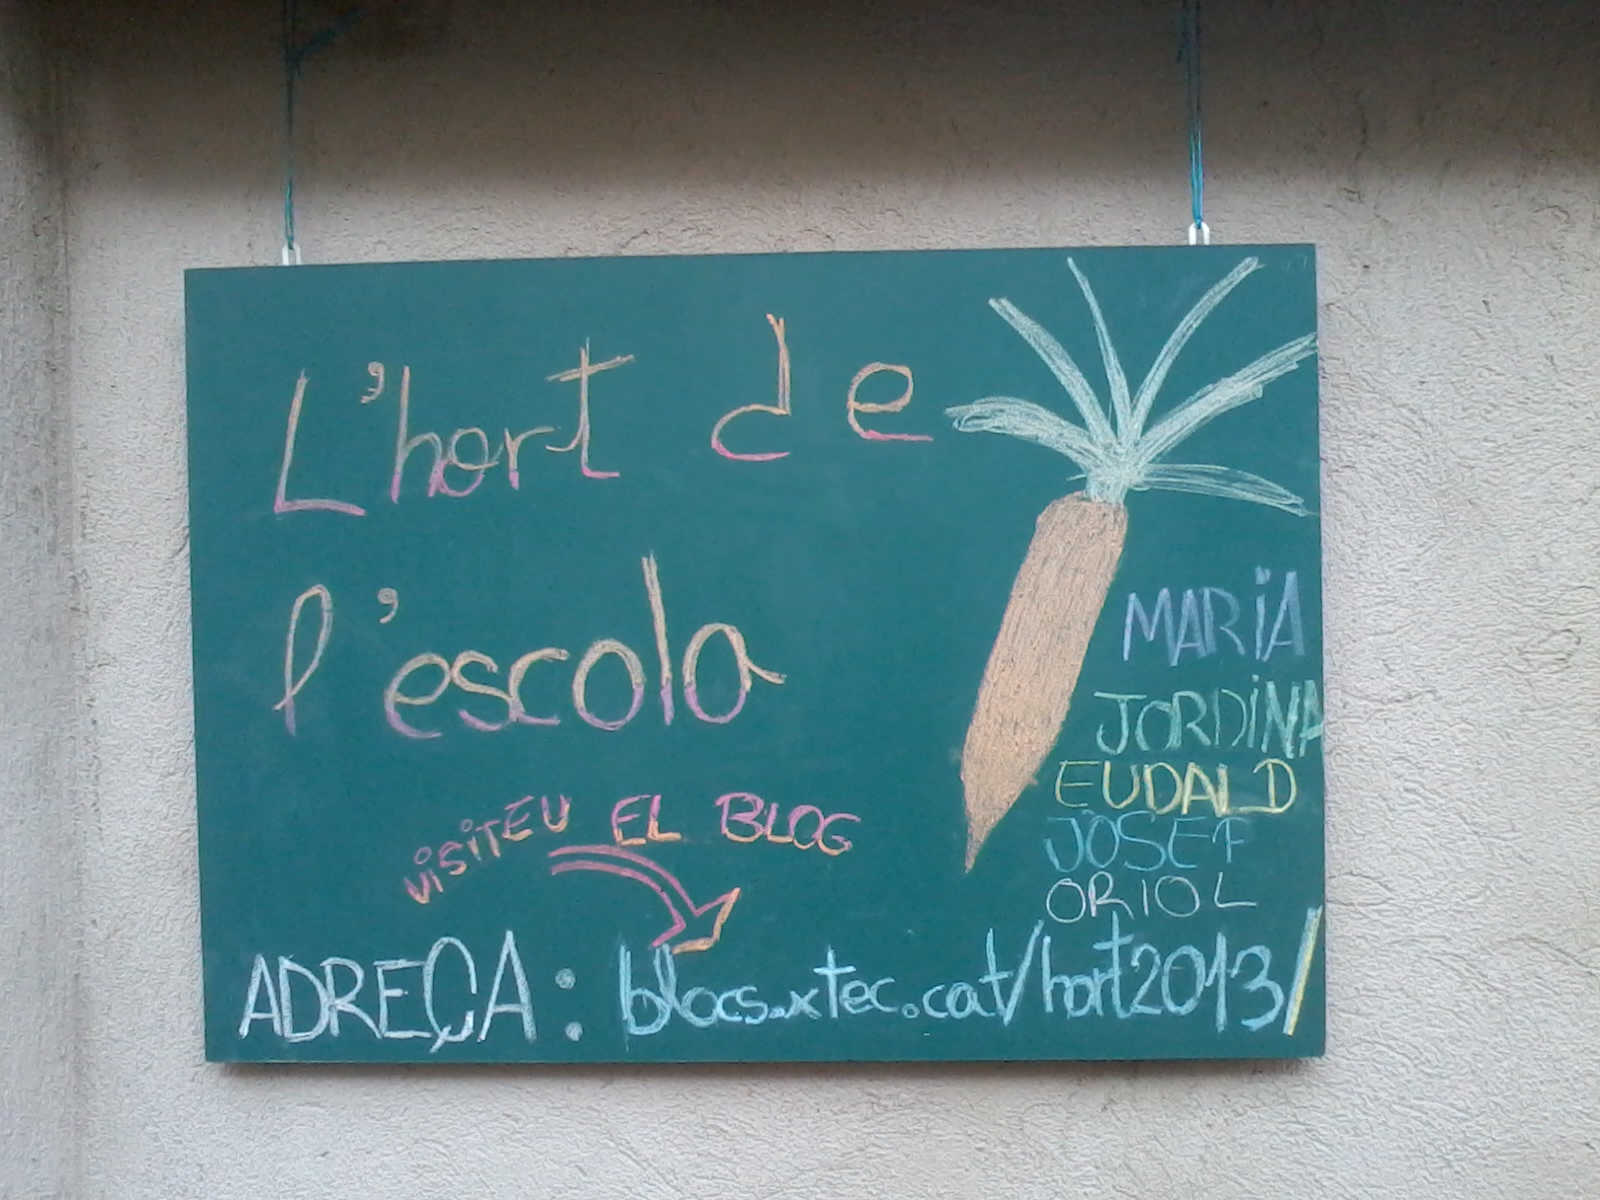 L'hort de
l'escola
MARiA
JORDiNA
EUDALD
JOSEP
ORIOL
ViSiTEU EL BLOG
ADREÇA: blocs.xtec.cat/hort2013/